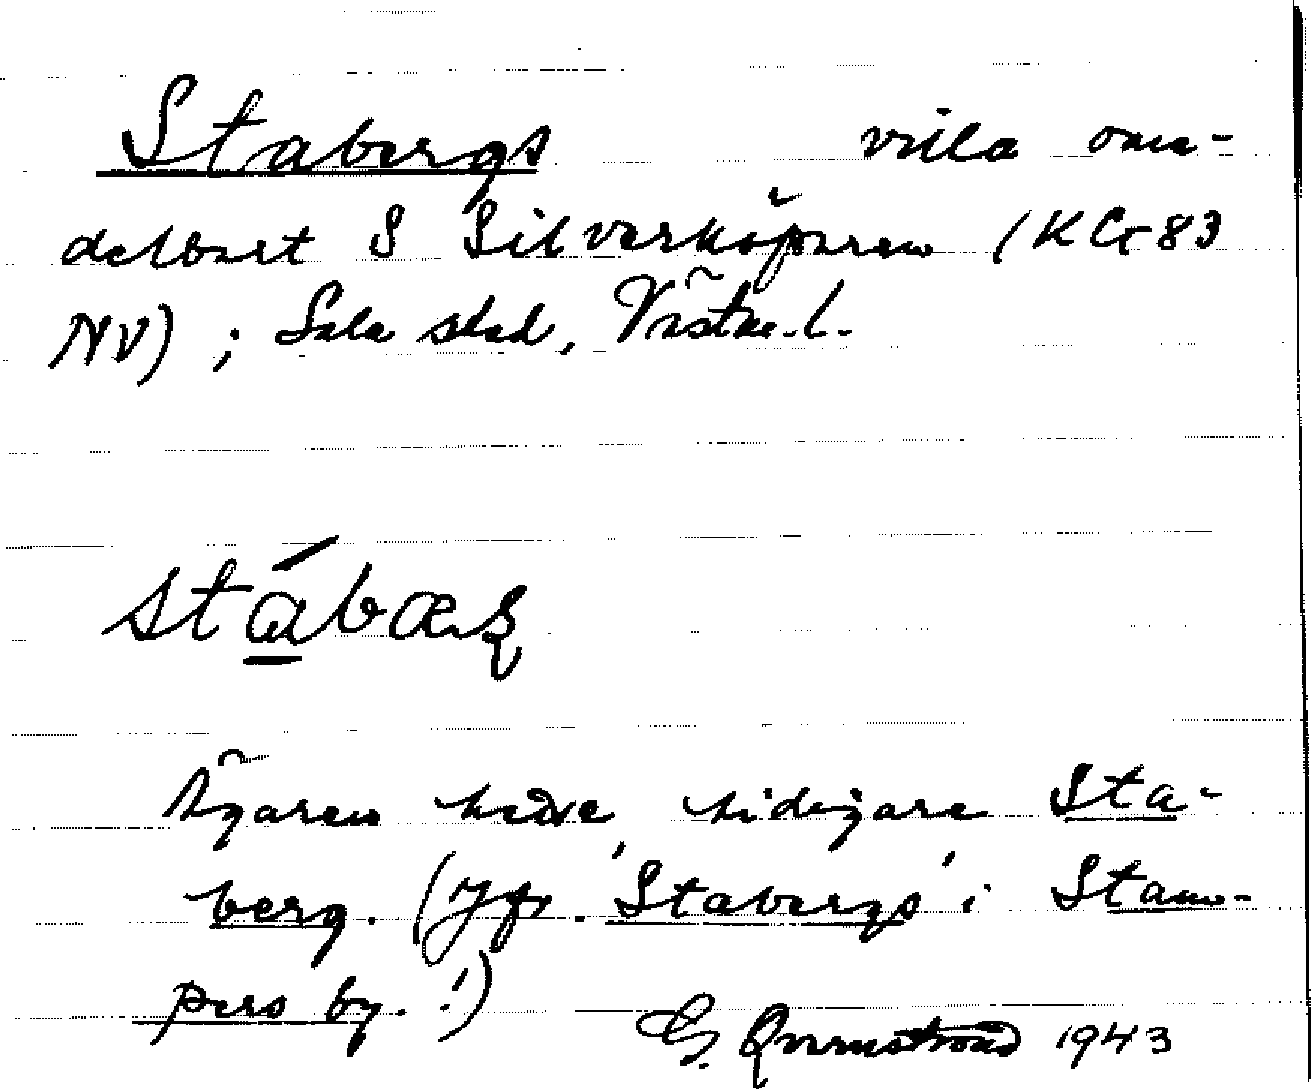 Stabergs villa ome-
delbart S Silverköparen (KG 83
NV) ; Sala stad, Västm. l.
stábæʂ
Ägaren hette tidigare Sta-
berg. (Jfr. 'Stabergs' i Stam-
pers by. !)
G. 1943